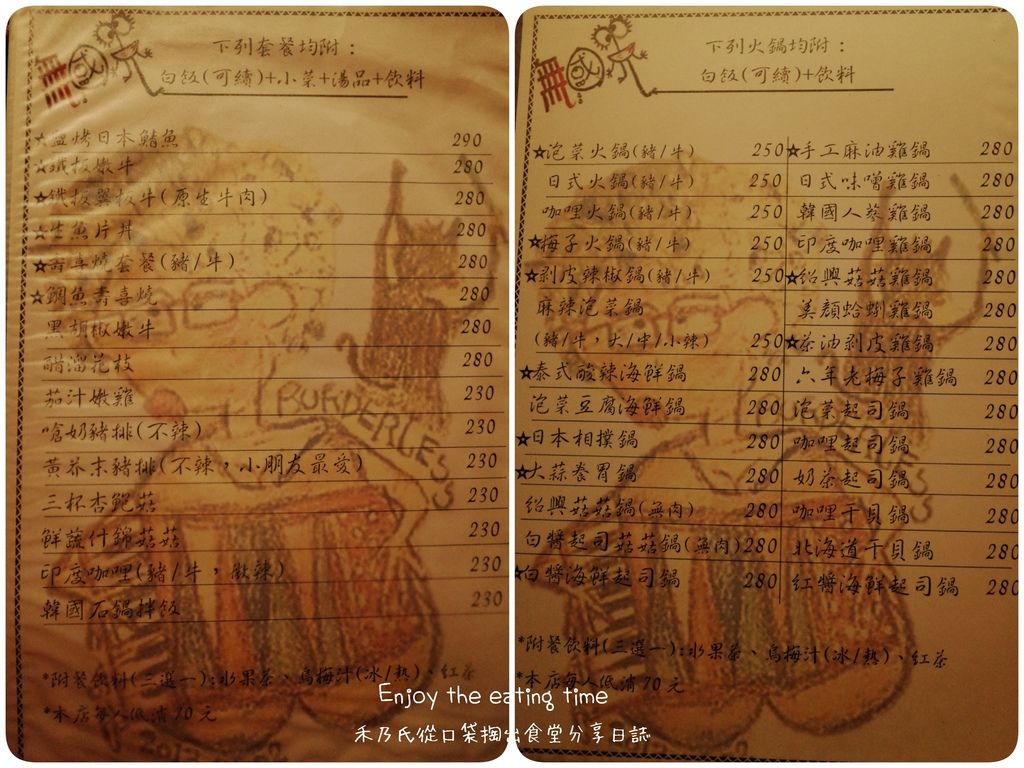 下列套餐均附：
白飯(可續)+小菜+湯品+飲料
☆鹽烤日本鯖魚 290
☆鐵板嫩牛 280
☆鐵板翼板牛(原生牛肉) 280
☆生魚片丼 280
☆壽喜燒套餐(豬/牛) 280
☆鯛魚壽喜燒 280
黑胡椒嫩牛 280
醋溜花枝 280
茄汁嫩雞 230
嗆奶豬排(不辣) 230
黃芥末豬排(不辣，小朋友最愛) 230
三杯杏鮑菇 230
鮮蔬什錦菇菇 230
印度咖哩(豬/牛，微辣) 230
韓國石鍋拌飯 230
*附餐飲料(三選一):水果茶、烏梅汁(冰/熱)、紅茶
*本店每人低消70元
下列火鍋均附：
白飯(可續)+飲料
☆泡菜火鍋(豬/牛) 250
日式火鍋(豬/牛) 250
咖哩火鍋(豬/牛) 250
☆梅子火鍋(豬/牛) 250
☆剥皮辣椒鍋(豬/牛) 250
麻辣泡菜鍋
(豬/牛，大/中/小辣) 250
☆泰式酸辣海鮮鍋 280
泡菜豆腐海鮮鍋 280
☆日本相撲鍋 280
☆大蒜養胃鍋 280
紹興菇菇鍋(無肉) 280
白醬起司菇菇鍋(無肉) 280
☆白醬海鮮起司鍋 280
☆手工麻油雞鍋 280
日式味噌雞鍋 280
韓國人蔘雞鍋 280
印度咖哩雞鍋 280
☆紹興菇菇雞鍋 280
美顏蛤蜊雞鍋 280
☆茶油剥皮雞鍋 280
六年老梅子雞鍋 280
泡菜起司鍋 280
咖哩起司鍋 280
奶茶起司鍋 280
咖哩干貝鍋 280
北海道干貝鍋 280
紅醬海鮮起司鍋 280
*附餐飲料(三選一):水果茶、烏梅汁(冰/熱)、紅茶
*本店每人低消70元
Enjoy the eating time
禾乃氏從口袋掏出食堂分享日誌